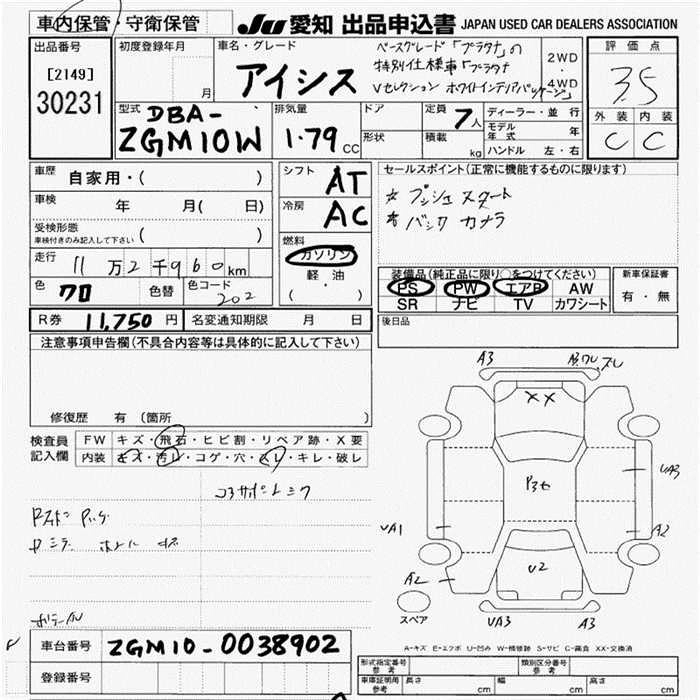 車内保管・守衛保管
JU 愛知 出品申込書 JAPAN USED CAR DEALERS ASSOCIATION
出品番号
[2149]
30231
初度登録年月
月
車名・グレード
アイシス
ベースグレード「プラタナ」の
特別仕様車「プラタナ
Vセレクション ホワイトインテリアパッケージ」
2WD
・
4WD
評価点
3.5
外装 内装
C C
型式
DBA-
ZGM10W
排気量
1.79 CC
ドア
形状
定員
7人
積載
kg
ディーラー・並行
モデル年式 年
ハンドル 左・右
車歴
自家用・( )
車検
年 月( 日)
受検形態
車検付きのみ記入して下さい ( )
走行
11万2千960km
色
クロ
色替
色コード
202
シフト
AT
冷房
AC
燃料
ガソリン
軽油
( ・ )
セールスポイント(正常に機能するものに限ります)
* プッシュスタート
* バックカメラ
装備品(純正品に限り○をつけてください)
PS PW エアB AW
SR ナビ TV カワシート
新車保証書
有・無
R券 11,750 円
名変通知期限 月 日
後日品
注意事項申告欄(不具合内容等は具体的に記入して下さい)
修復歴 有(箇所 )
検査員記入欄
FW キズ・飛石・ヒビ割・リペア跡・X要
内装 キズ・汚レ・コゲ・穴・スレ・キレ・破レ
コアサポートミク
A3
XX
UA3
UA1
A2
U2
A2
UA3
A3
スペア
A-キズ E-エクボ U-凹み W-補修跡 S-サビ C-腐食 XX-交換済
車台番号
ZGM10-0038902
登録番号
形式指定番号
参考
類別区分番号
参考
車庫証明用
参考
長さ cm
幅 cm
高さ cm